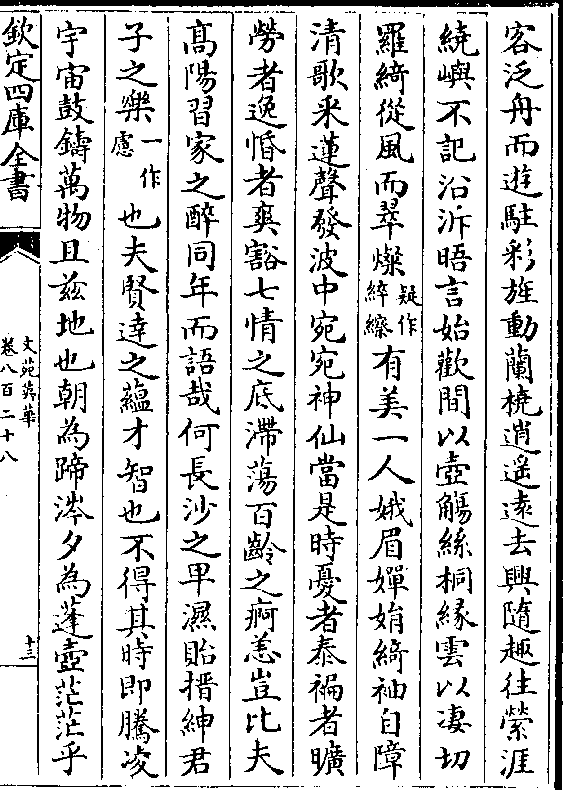 客泛舟而遊駐彩旌動蘭橈逍遥逺去興隨趣往縈涯
繞嶼不記沿泝晤言始歡間以壺觴絲桐縁雲以凄切
羅綺從風而翠燦疑作綷縩有美一人娥眉嬋娟綺袖自障
清歌采蓮聲發波中宛宛神仙當是時憂者泰褊者曠
勞者逸惛者爽豁七情之底滯蕩百齡之痾恙豈比夫
髙陽習家之醉同年而語哉何長沙之卑濕貽搢紳君
子之樂一作慮也夫賢達之藴才智也不得其時即騰凌
宇宙鼓鑄萬物且兹地也朝為蹄涔夕為蓬壺茫茫乎
欽定四庫全書
文苑英華
卷八百二十八
十三